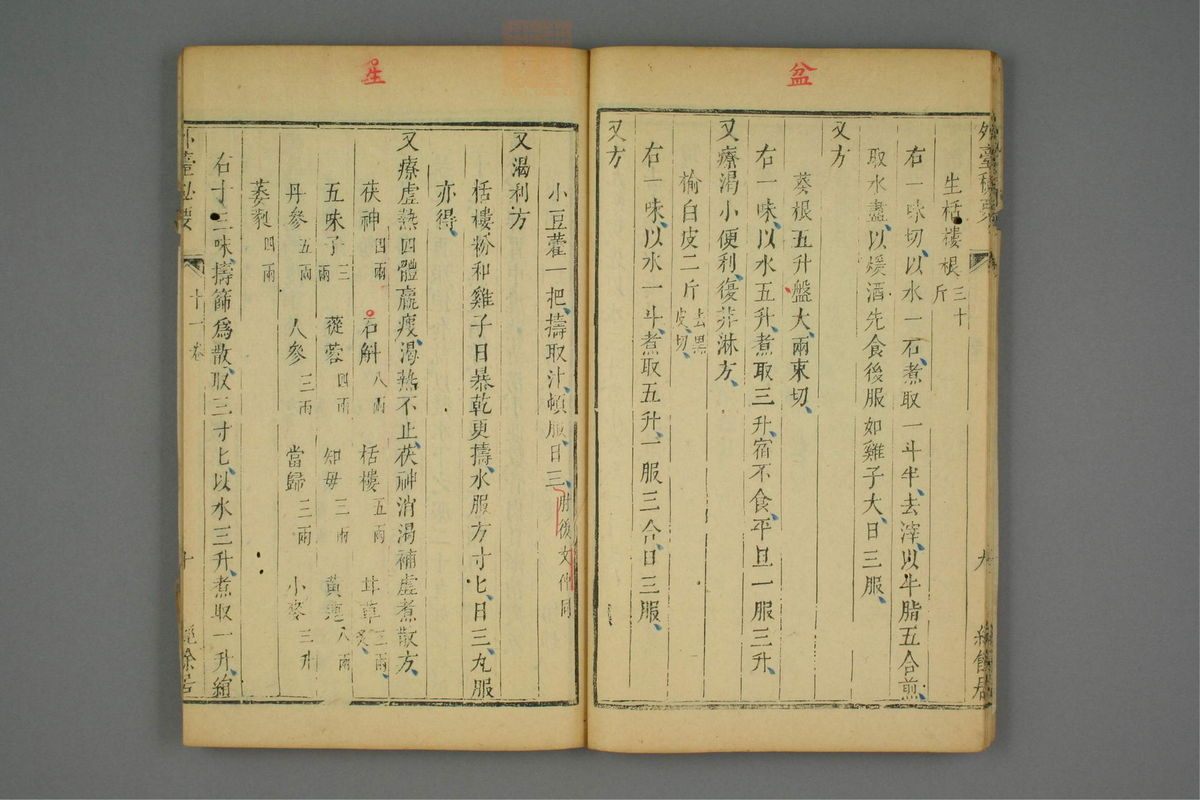 盆
外臺秘要
九
經餘居
生栝樓根三十斤
右一味切、以水一石、煮取一斗半、去滓、以牛脂五合煎、
取水盡、以煖酒先食後服如雞子大、日三服、
又方
葵根五升盤大兩束切、
右一味、以水五升、煮取三升、宿不食、平旦一服三升、
又療渴小便利、復非淋方、
榆白皮二斤去黑皮、切、
右一味、以水一斗、煮取五升、一服三合、日三服、
又方
星
小豆藿一把、擣取汁、頓服、日三、肘後文仲同
又渴利方
栝樓粉和雞子日暴乾更擣、水服方寸匕、日三、丸服
亦得、
又療虛熱四體羸瘦、渴熱不止、茯神消渴補虛煮散方、
茯神四兩 石斛八兩 栝樓五兩 甘草三兩、炙、
五味子三兩 蓯蓉四兩 知母三兩 黃連八兩
丹參五兩 人參三兩 當歸三兩 小麥三升
葳蕤四兩
右十三味、擣篩爲散、取三寸匕、以水三升、煮取一升、絹
外臺祕要
十一卷
十
經餘居